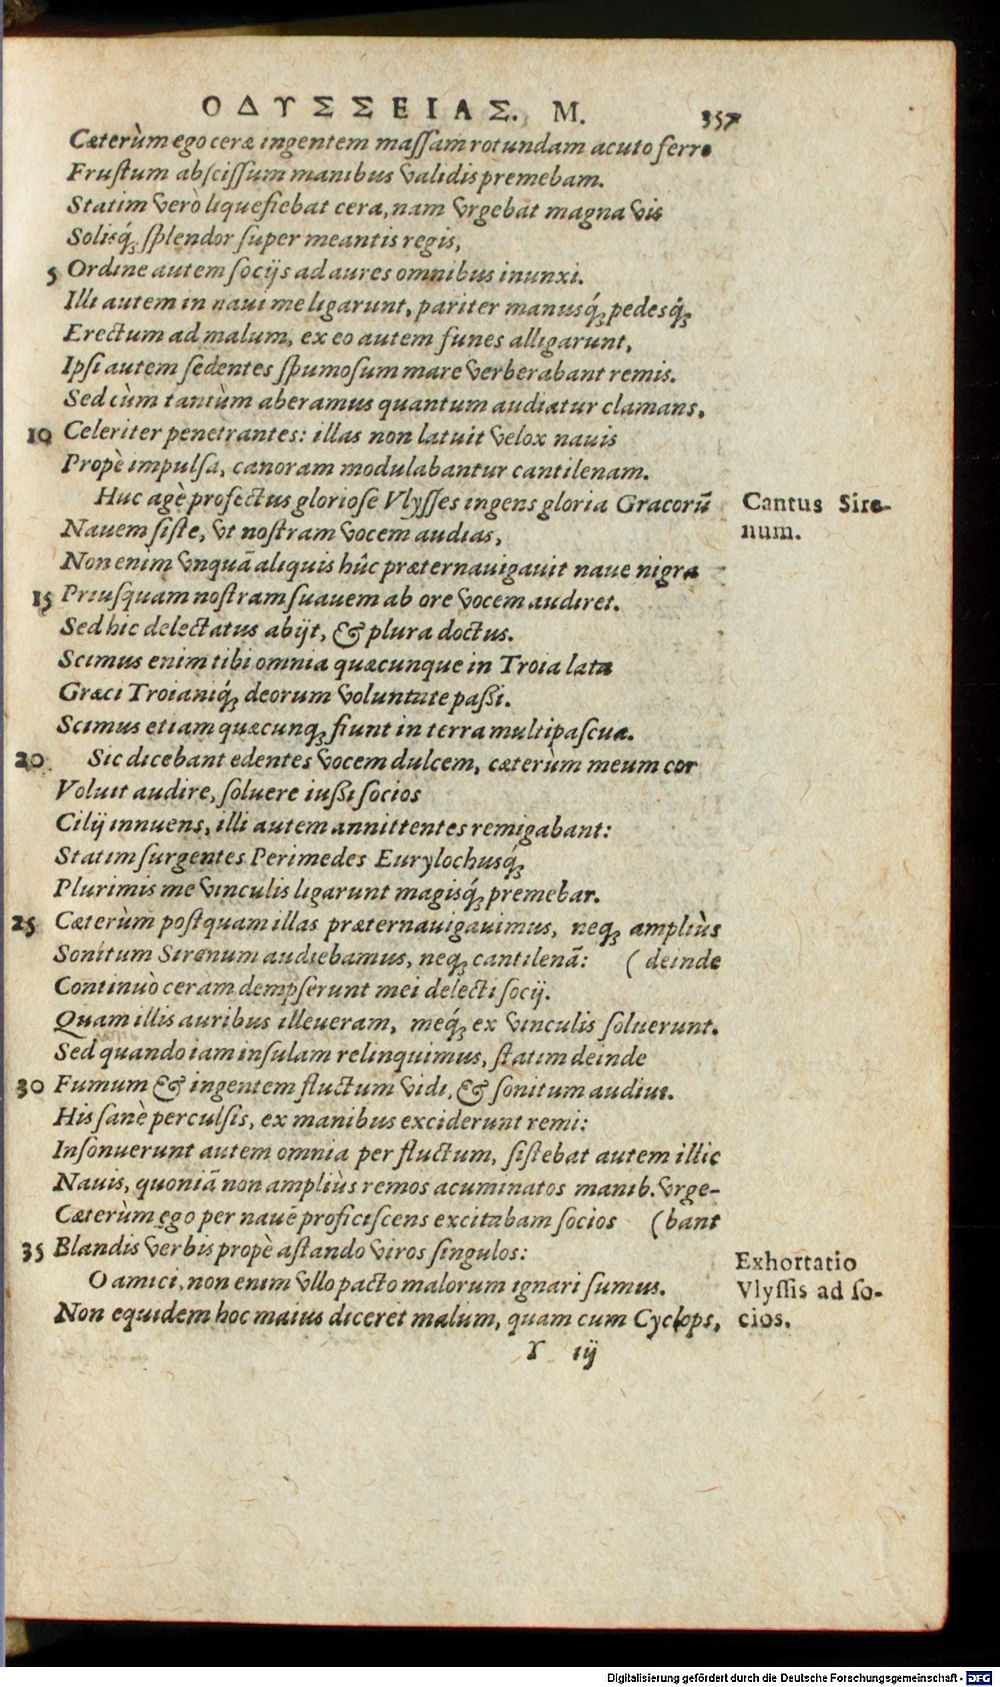 ΟΔΥΣΣΕΙΑΣ. Μ. 357
Cæterùm ego ceræ ingentem maſſam rotundam acuto ferro
Fruſtum abſciſſum manibus validis premebam.
Statim verò liquefiebat cera, nam vrgebat magna vis
Solisq́; ſplendor ſuper meantis regis,
5 Ordine autem ſocijs ad aures omnibus inunxi.
Illi autem in naui me ligarunt, pariter manusq́; pedesq́;
Erectum ad malum, ex eo autem funes alligarunt,
Ipſi autem ſedentes ſpumoſum mare verberabant remis.
Sed cùm tantùm aberamus quantum audiatur clamans.
10 Celeriter penetrantes: illas non latuit velox nauis
Propè impulſa, canoram modulabantur cantilenam.
Huc agè profectus glorioſe Vlyſſes ingens gloria Gracorũ
Cantus Sire-
Nauem ſiſte, vt noſtram vocem audias,
num.
Non enim vnquã aliquis hûc præternauigauit naue nigra
15 Priuſquam noſtram ſuauem ab ore vocem audiret.
Sed hic delectatus abijt, & plura doctus.
Scimus enim tibi omnia quæcunque in Troia lata
Græci Troianiq́; deorum voluntate paßi.
Scimus etiam quæcunq; fiunt in terra multipaſcua.
20. Sic dicebant edentes vocem dulcem, cæterùm meum cor
Voluit audire, ſoluere iußi ſocios
Cilij innuens, illi autem annittentes remigabant:
Statim ſurgentes Perimedes Eurylochusq́;
Plurimis me vinculis ligarunt magisq́; premebar.
25 Cæterùm poſtquam illas præternauigauimus, neq; ampliùs
Sonitum Sirenum audiebamus, neq; cantilenã: ( deinde
Continuò ceram dempſerunt mei delecti ſocij.
Quam illis auribus illeueram, meq́; ex vinculis ſoluerunt.
Sed quando iam inſulam relinquimus, ſtatim deinde
30 Fumum & ingentem fluctum vidi, & ſonitum audiui.
His ſanè perculſis, ex manibus exciderunt remi:
Inſonuerunt autem omnia per fluctum, ſiſtebat autem illic
Nauis, quoniã non ampliùs remos acuminatos manib. vrge-
Cæterùm ego per nauẽ proficiſcens excitabam ſocios (bant
35 Blandis verbis propè aſtando viros ſingulos:
Exhortatio
O amici, non enim vllo pacto malorum ignari ſumus.
Vlyſſis ad ſo-
Non equidem hoc maius diceret malum, quam cum Cyclops,
cios.
Υ iij
Digitalisierung gefördert durch die Deutsche Forschungsgemeinschaft - DFG